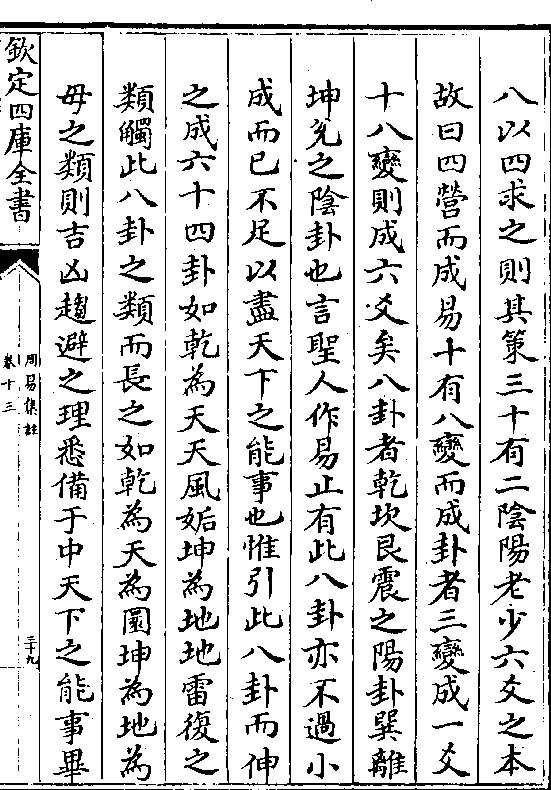 八以四求之則其策三十有二陰陽老少六爻之本
故曰四營而成易十有八變而成卦者三變成一爻
十八變則成六爻矣八卦者乾坎艮震之陽卦巽離
坤兌之陰卦也言聖人作易止有此八卦亦不過小
成而已不足以盡天下之能事也惟引此八卦而伸
之成六十四卦如乾為天天風姤坤為地地雷復之
類觸此八卦之類而長之如乾為天為圜坤為地為
母之類則吉凶趨避之理悉備于中天下之能事畢
欽定四庫全書
周易集註
卷十三
三十九